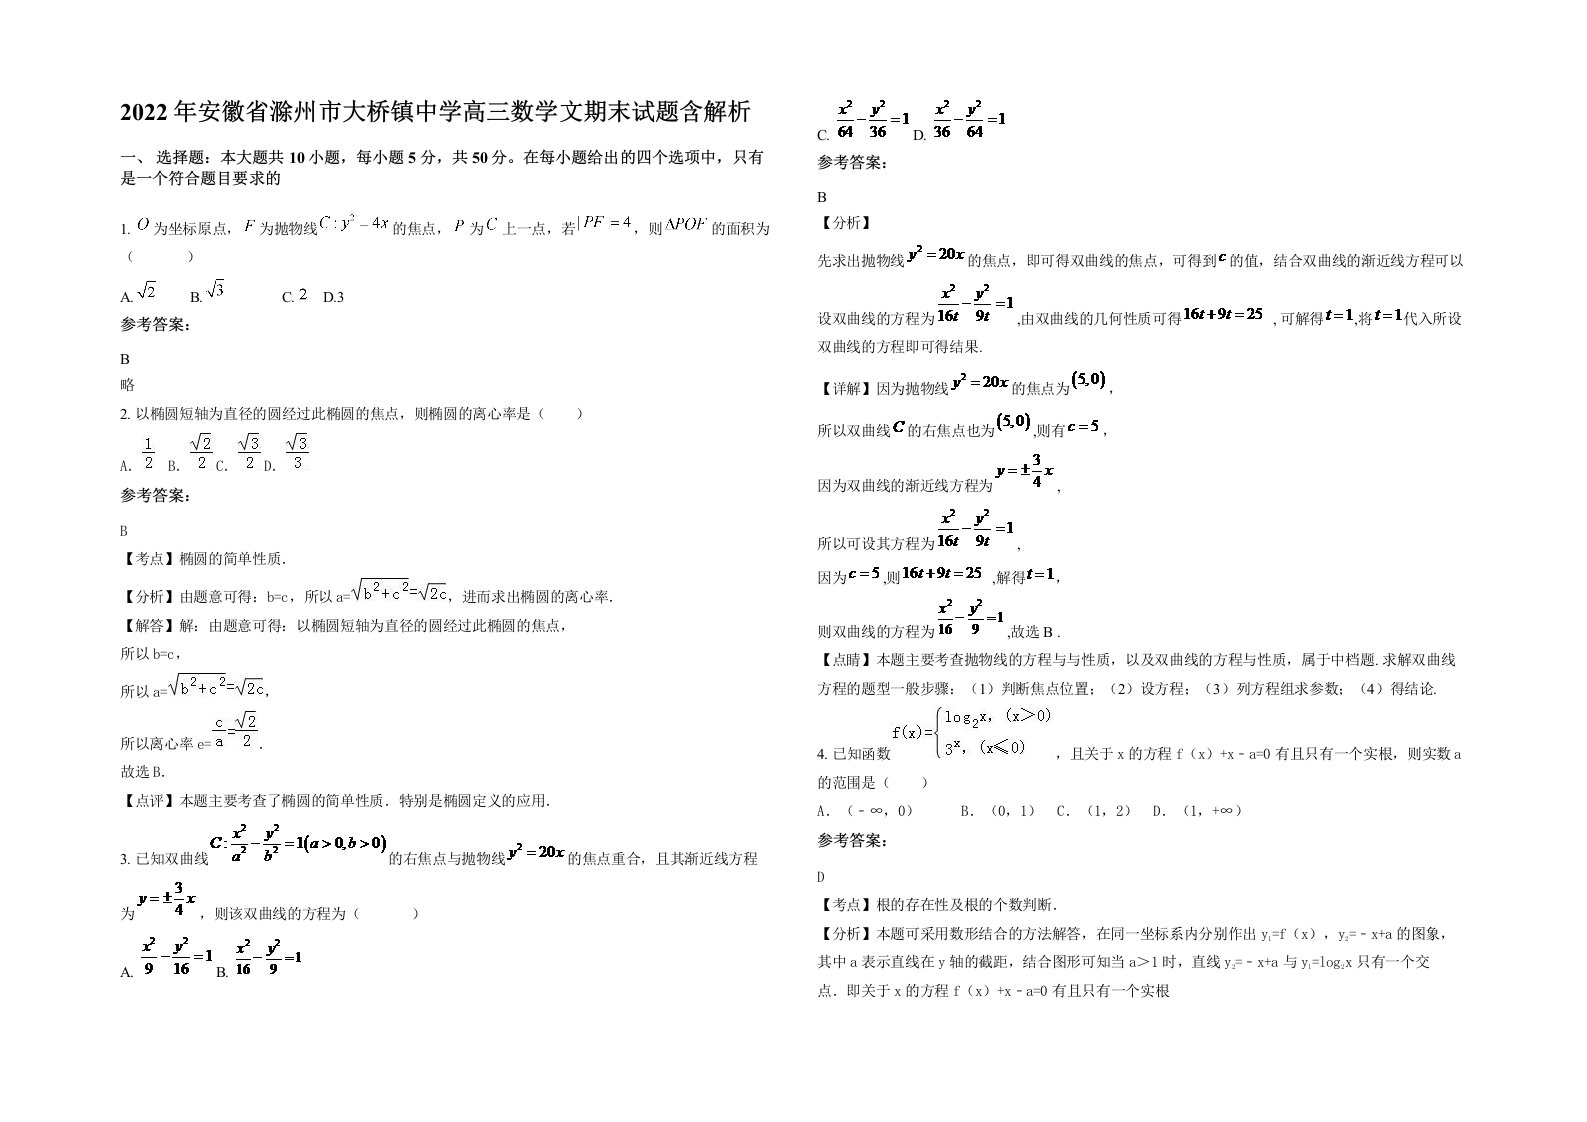 2022 年安徽省滁州市大桥镇中学高三数学文期末试题含解析
一、 选择题：本大题共 10 小题，每小题 5 分，共 50 分。在每小题给出的四个选项中，只有
是一个符合题目要求的
1. O 为坐标原点， F 为抛物线 C : y² – 4x 的焦点， P 为 C 上一点，若 |PF = 4 ，则 ΔPOF 的面积为
（　　　）
A. √2　B. √3　C. 2　D.3
参考答案：
B
略
2. 以椭圆短轴为直径的圆经过此椭圆的焦点，则椭圆的离心率是（　　）
A. 1/2　B. √2/2 C. √3/2 D. √3/3
参考答案：
B
【考点】椭圆的简单性质．
【分析】由题意可得：b=c，所以 a=√(b²+c²)=√2c，进而求出椭圆的离心率．
【解答】解：由题意可得：以椭圆短轴为直径的圆经过此椭圆的焦点，
所以 b=c，
所以 a=√(b²+c²)=√2c，
所以离心率 e=c/a=√2/2．
故选 B．
【点评】本题主要考查了椭圆的简单性质．特别是椭圆定义的应用．
3. 已知双曲线 C: x²/a² − y²/b² = 1(a > 0, b > 0) 的右焦点与抛物线 y² = 20x 的焦点重合，且其渐近线方程
为 y = ± 3/4 x ，则该双曲线的方程为（　　　）
A. x²/9 − y²/16 = 1 B. x²/16 − y²/9 = 1
C. x²/64 − y²/36 = 1 D. x²/36 − y²/64 = 1
参考答案：
B
【分析】
先求出抛物线 y² = 20x 的焦点，即可得双曲线的焦点，可得到 c 的值，结合双曲线的渐近线方程可以
设双曲线的方程为 x²/16t − y²/9t = 1 ,由双曲线的几何性质可得 16t + 9t = 25 , 可解得 t = 1 ,将 t = 1 代入所设
双曲线的方程即可得结果.
【详解】因为抛物线 y² = 20x 的焦点为 (5,0) ，
所以双曲线 C 的右焦点也为 (5,0) ,则有 c = 5 ，
因为双曲线的渐近线方程为 y = ± 3/4 x ，
所以可设其方程为 x²/16t − y²/9t = 1 ，
因为 c = 5 ,则 16t + 9t = 25 ,解得 t = 1 ，
则双曲线的方程为 x²/16 − y²/9 = 1 ,故选 B .
【点睛】本题主要考查抛物线的方程与与性质，以及双曲线的方程与性质，属于中档题. 求解双曲线
方程的题型一般步骤：（1）判断焦点位置；（2）设方程；（3）列方程组求参数；（4）得结论.
4. 已知函数 f(x)={log₂x，(x＞0) 3ˣ，(x≤0) ，且关于 x 的方程 f（x）+x﹣a=0 有且只有一个实根，则实数 a
的范围是（　　）
A．（﹣∞，0）　B．（0，1）　C．（1，2）　D．（1，+∞）
参考答案：
D
【考点】根的存在性及根的个数判断．
【分析】本题可采用数形结合的方法解答，在同一坐标系内分别作出 y₁=f（x），y₂=﹣x+a 的图象，
其中 a 表示直线在 y 轴的截距，结合图形可知当 a＞1 时，直线 y₂=﹣x+a 与 y₁=log₂x 只有一个交
点．即关于 x 的方程 f（x）+x﹣a=0 有且只有一个实根